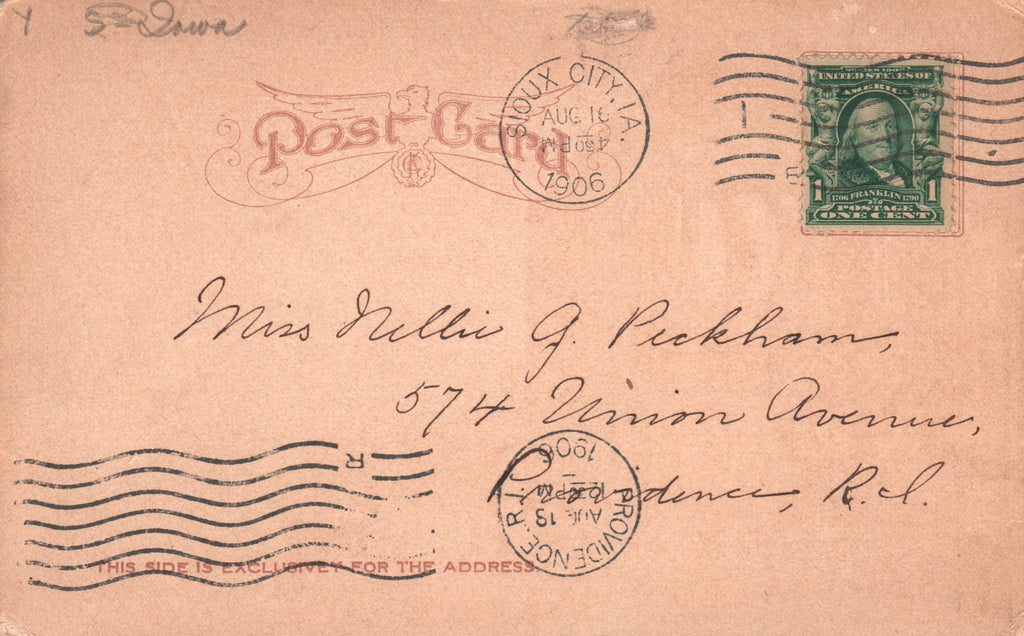 Iowa
Post Card
SIOUX CITY, IA.
AUG 16
4 30 PM
1906
1
SERIES 1902
UNITED STATES OF
AMERICA
1 1706 FRANKLIN 1790 1
POSTAGE
ONE CENT
Miss Nellie G. Peckham,
574 Union Avenue,
Providence, R.I.
1906
PM
AUG 19
PROVIDENCE R.I.
R
THIS SIDE IS EXCLUSIVEY FOR THE ADDRESS.